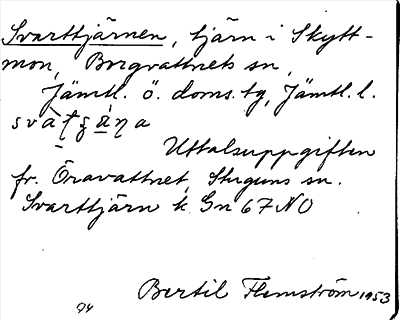 Svarttjärnen, tjärn i Skytt-
mon, Borgvattnets sn,
Jämtl. ö. doms. tg, Jämtl. l.
Uttalsuppgiften
fr. Öravattnet, Stuguns sn.
Svarttjärn k. Gn 67 NO
Bertil Flemström 1953